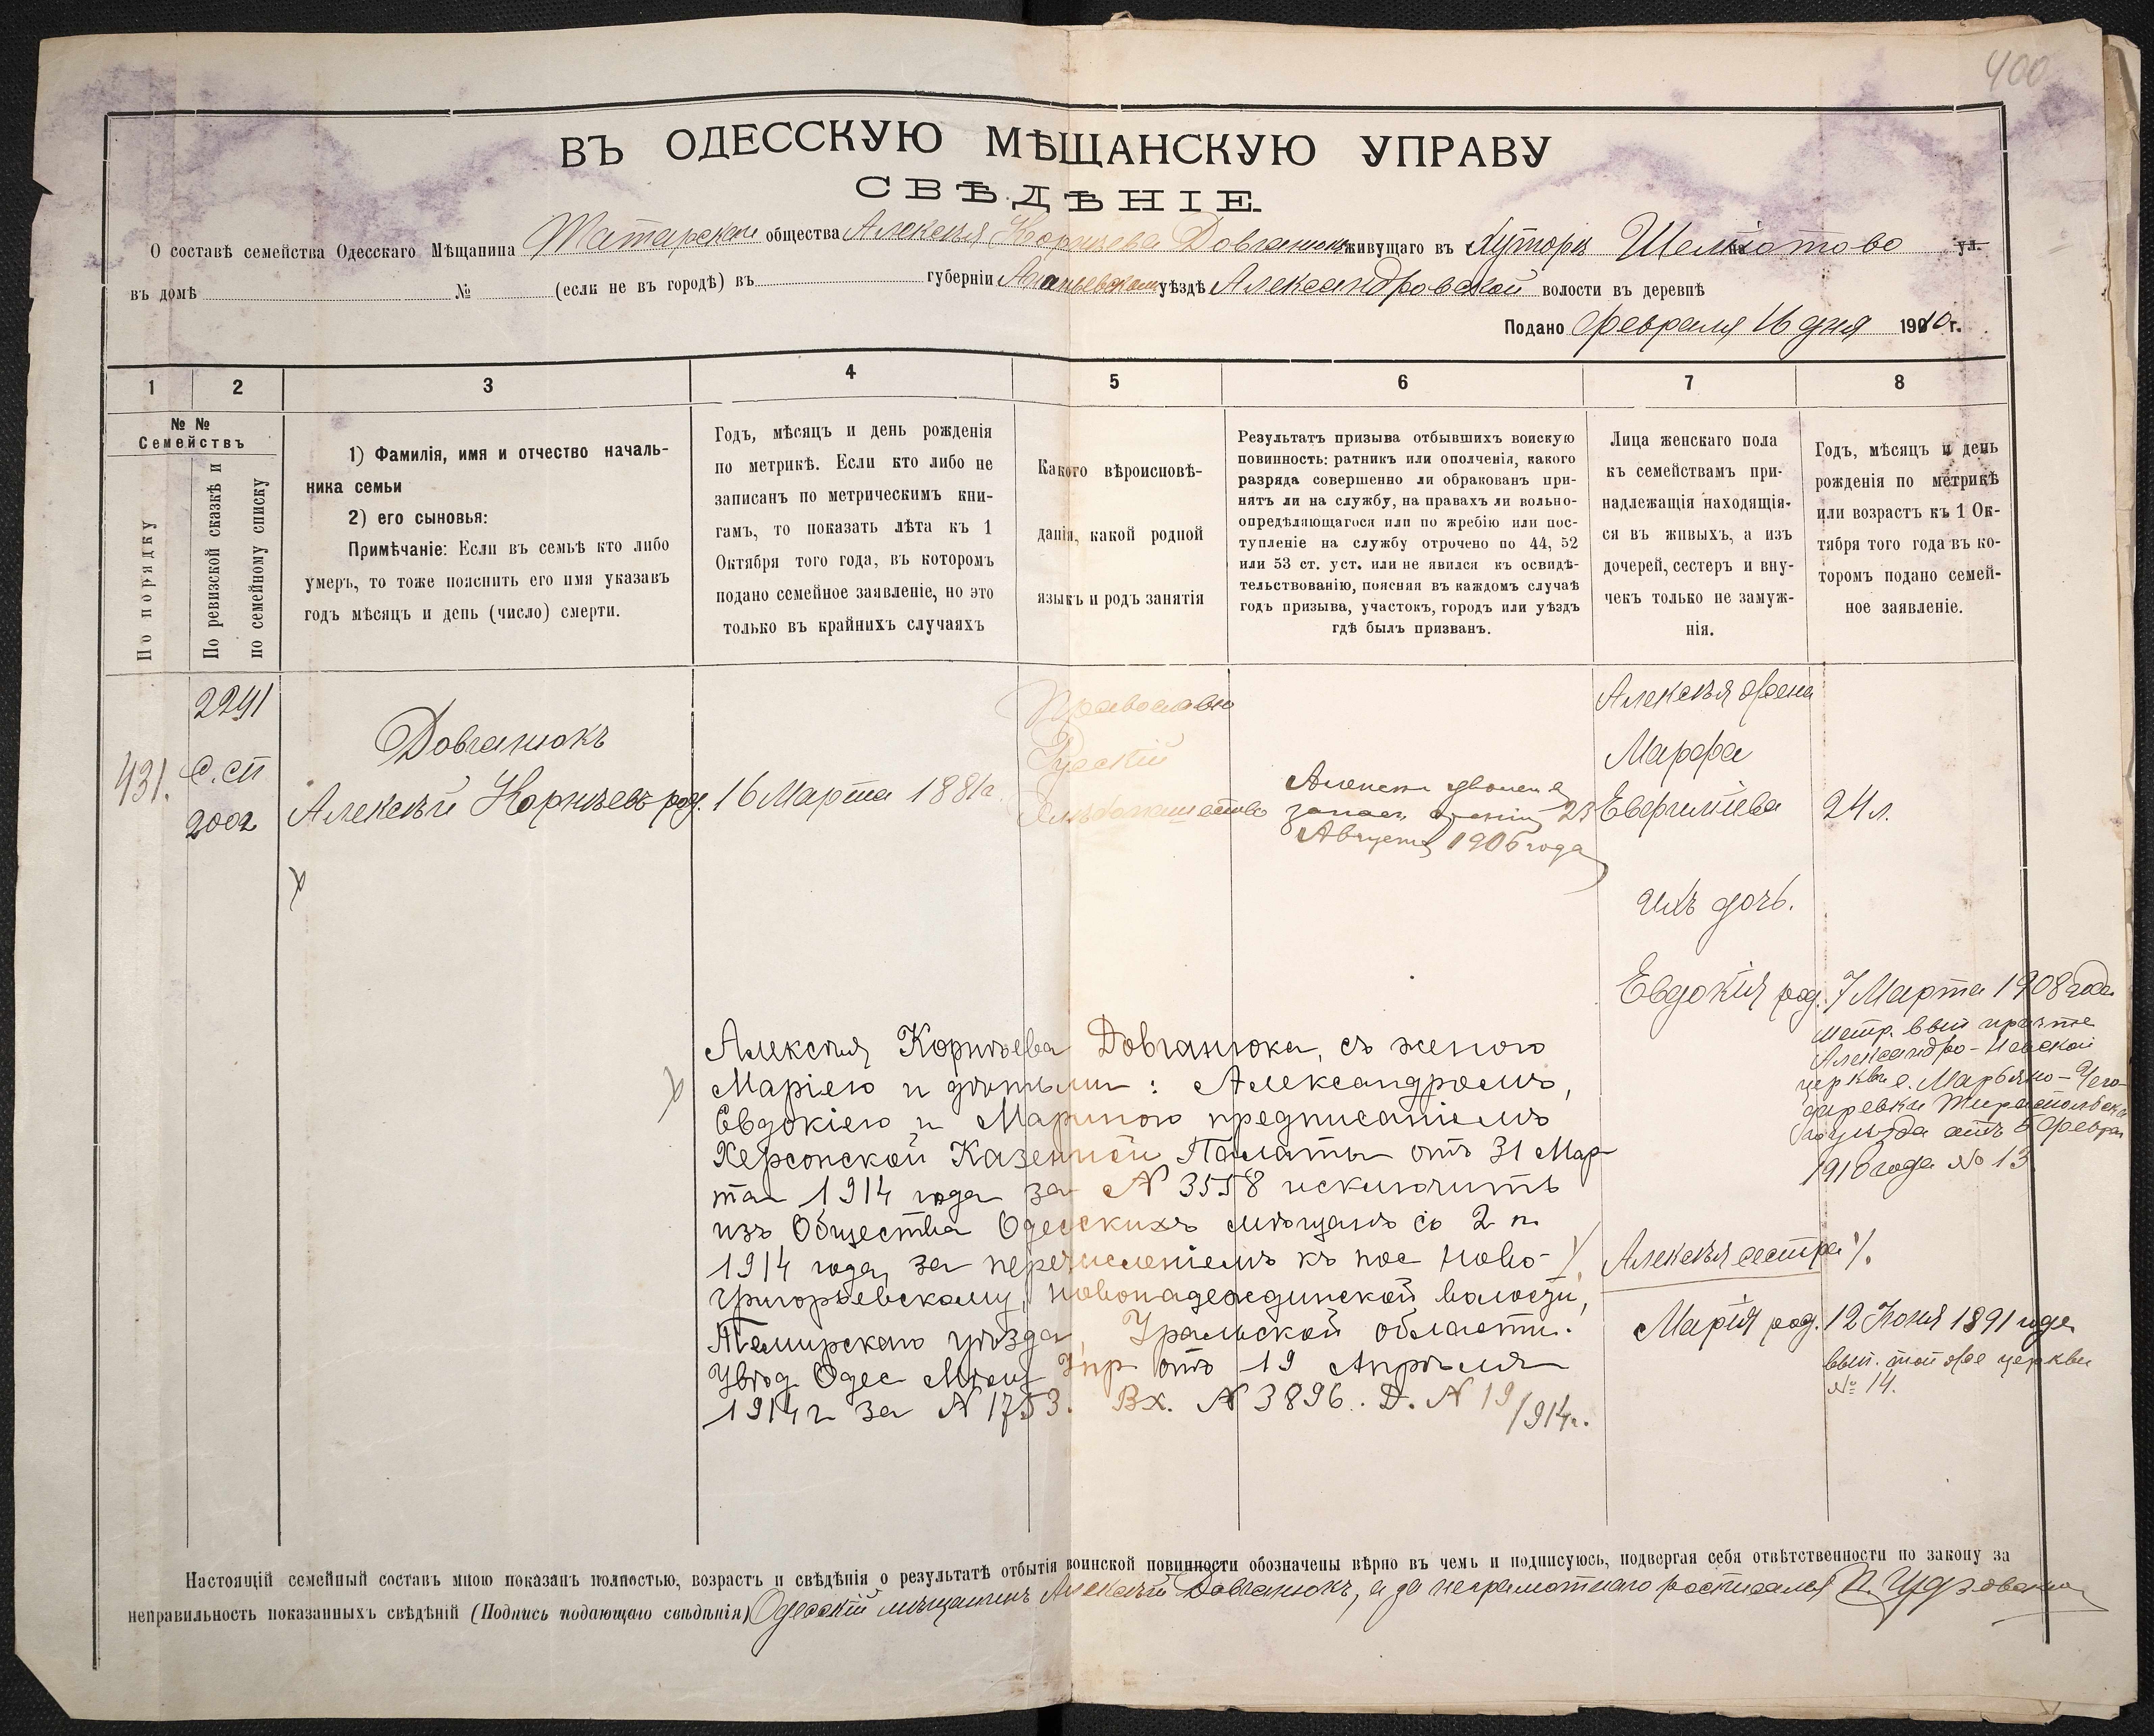 400
ВЪ ОДЕССКУЮ МѢЩАНСКУЮ УПРАВУ
СВѢДѢНІЕ
О составѣ семейства Одесскаго Мѣщанина Татарскаго общества Алексѣя Корнѣева Довганюка живущаго въ Хуторѣ ул.
въ домѣ № (если не въ городѣ) въ губерніи Ананьевскомъ уѣздѣ Александровской волости въ деревнѣ
Подано Февраля 16 дня 1910 г.
1 2 3 4 5 6 7 8
№ № Семействъ
По порядку
По ревизской сказкѣ и по семейному списку
1) Фамилія, имя и отчество началь-
ника семьи
2) его сыновья:
Примѣчаніе: Если въ семьѣ кто либо
умеръ, то тоже пояснить его имя указавъ
годъ мѣсяцъ и день (число) смерти.
Годъ, мѣсяцъ и день рожденія
по метрикѣ. Если кто либо не
записанъ по метрическимъ кни-
гамъ, то показать лѣта къ 1
Октября того года, въ которомъ
подано семейное заявленіе, но это
только въ крайнихъ случаяхъ
Какого вѣроисповѣ-
данія, какой родной
языкъ и родъ занятія
Результатъ призыва отбывшихъ воискую
повинность: ратникъ или ополченія, какого
разряда совершенно ли обракованъ при-
нятъ ли на службу, на правахъ ли вольно-
опредѣляющагося или по жребію или пос-
тупленіе на службу отрочено по 44, 52
или 53 ст. уст. или не явился къ освидѣ-
тельствованію, поясняя въ каждомъ случаѣ
годъ призыва, участокъ, городъ или уѣздъ
гдѣ былъ призванъ.
Лица женскаго пола
къ семействамъ при-
надлежащія находящія-
ся въ живыхъ, а изъ
дочерей, сестеръ и вну-
чекъ только не замуж-
нія.
Годъ, мѣсяцъ и день
рожденія по метрикѣ
или возрастъ къ 1 Ок-
тября того года въ ко-
торомъ подано семей-
ное заявленіе.
431.
2291
С. сп
2002
Довганюкъ
Алексѣй Корнѣевъ род. 16 Марта 1881 г.
Православно
Русскій
Хлѣбопашество
запас 23
Августа 1906 года
Алексѣя жена
Марфа
Евфиміева 24 л.
ихъ дочь.
Евдокія род. 7 Марта 1908 года
метр. вып причте
Александро-Невской
церкви с. Марьяно-Чего-
даревки Тираспольска
го уѣзда отъ 6 Февра
1910 года № 13
Алексѣя сестра
Марія род. 12 Іюня 1891 года
вып. той же церкви
№ 14.
Алексѣя Корнѣева Довганюка, съ женою
Маріею и дѣтьми: Александромъ,
Евдокіею и Мариною предписаніемъ
Херсонской Казенной Палаты отъ 31 Мар
та 1914 года за № 3558 исключить
изъ Общества Одесскихъ мѣщанъ со 2 п.
1914 года, за перечисленіемъ къ пос Ново-
григорьевскому, Новонадеждинской волости,
Темирскаго уѣзда, Уральской области.
Увѣд. Одес Мѣщ Упр отъ 19 Апрѣля
1914 г за № 1753. Вх. № 3896. Д. № 19/914 г.
Настоящій семейный составъ мною показанъ полностью, возрастъ и свѣдѣнія о результатѣ отбытія воинской повинности обозначены вѣрно въ чемъ и подписуюсь, подвергая себя отвѣтственности по закону за
неправильность показанныхъ свѣдѣній (Подпись подающаго свѣдѣнія) Одесскій мѣщанинъ Алексѣй Довганюкъ, а за неграмотнаго росписался